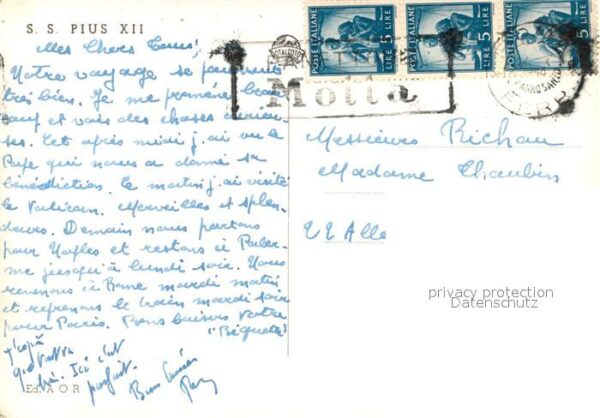 S. S. PIUS XII
Mes Chers Amis,
Notre voyage se poursuit
très bien. Je me promène beau
coup et vois des choses curieu-
ses. Cet après midi j'ai vu le
Pape qui nous a donné sa
bénédiction. Ce matin j'ai visité
le Vatican. Merveilles et splen-
deurs. Demain nous partons
pour Naples et restons à Paler-
me jusqu'à lundi soir. Nous
revenons à Rome mardi matin
et reprenons le train mardi soir
pour Paris. Bons baisers Votre
"Biquette"
J'espère
que
bien. Ici c'est
parfait.
Bons baisers
Ed. A O R
POSTE ITALIANE
5 LIRE
POSTE ITALIANE
5 LIRE
POSTE ITALIANE
5 LIRE
Motta
Messieurs Richau
Madame Chaubin
22 Alle
privacy protection
Datenschutz